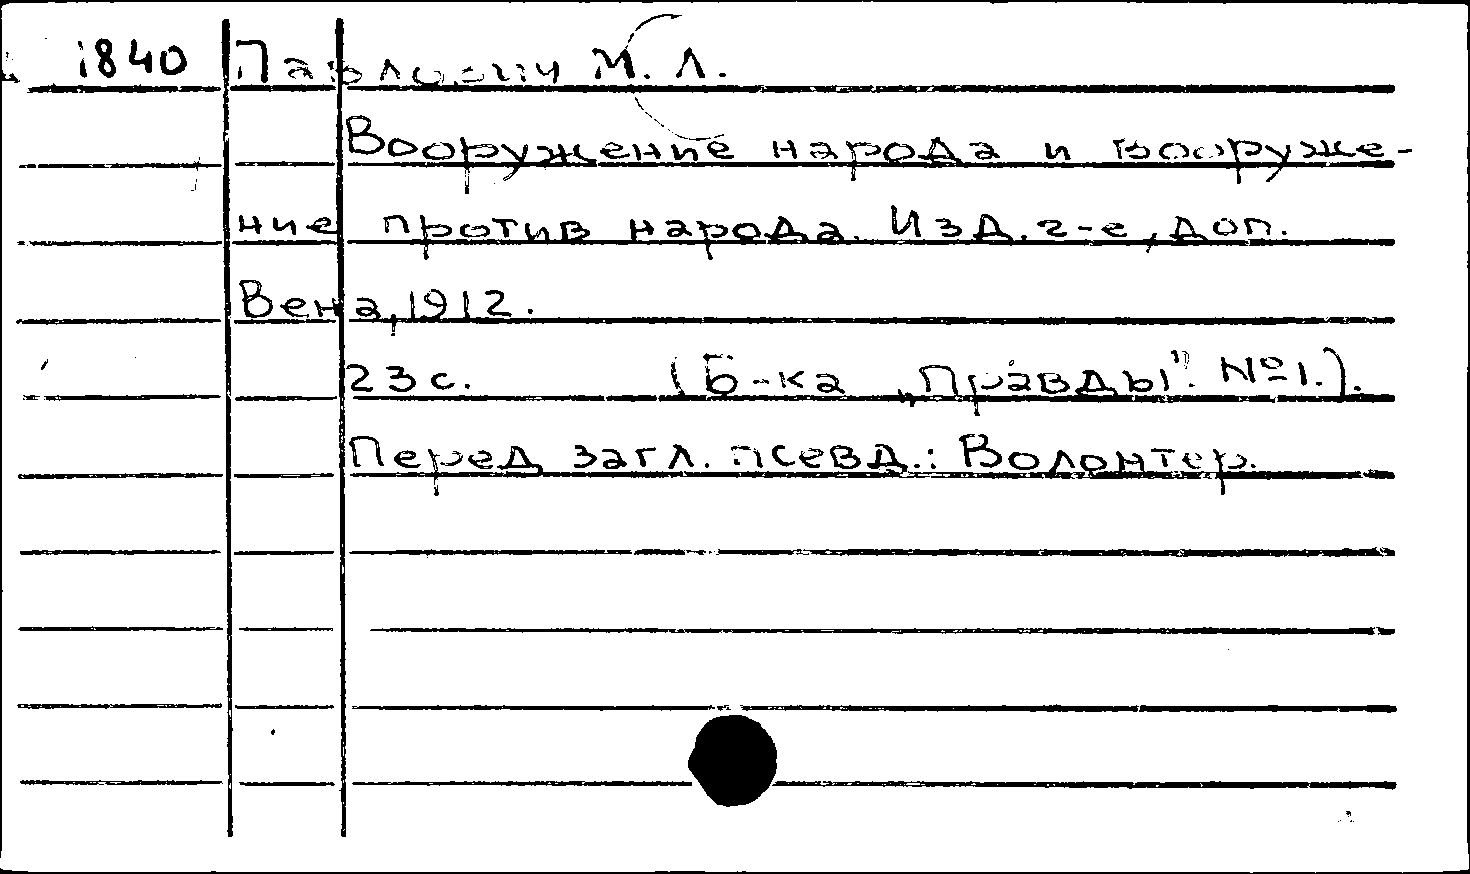 1840 Павлович М. Л.
Вооружение народа и вооруже-
ние против народа. Изд. 2-е, доп.
Вена, 1912.
23 с. (Б-ка „Правды". №1.).
Перед загл. псевд.: Волонтер.